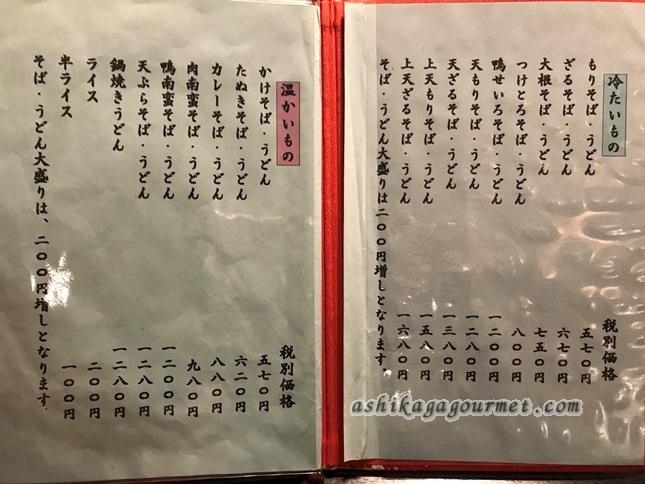 冷たいもの 税別価格
もりそば・うどん 五七〇円
ざるそば・うどん 六七〇円
大根そば・うどん 七五〇円
つけとろそば・うどん 八〇〇円
鴨せいろそば・うどん 一二〇〇円
天もりそば・うどん 一二八〇円
天ざるそば・うどん 一三八〇円
上天もりそば・うどん 一五八〇円
上天ざるそば・うどん 一六八〇円
そば・うどん大盛りは二〇〇円増しとなります。
温かいもの 税別価格
かけそば・うどん 五七〇円
たぬきそば・うどん 六二〇円
カレーそば・うどん 八八〇円
肉南蛮そば・うどん 九八〇円
鴨南蛮そば・うどん 一二〇〇円
天ぷらそば・うどん 一二八〇円
鍋焼きうどん 一二八〇円
ライス 二〇〇円
半ライス 一〇〇円
そば・うどん大盛りは、二〇〇円増しとなります。
ashikagagourmet.com